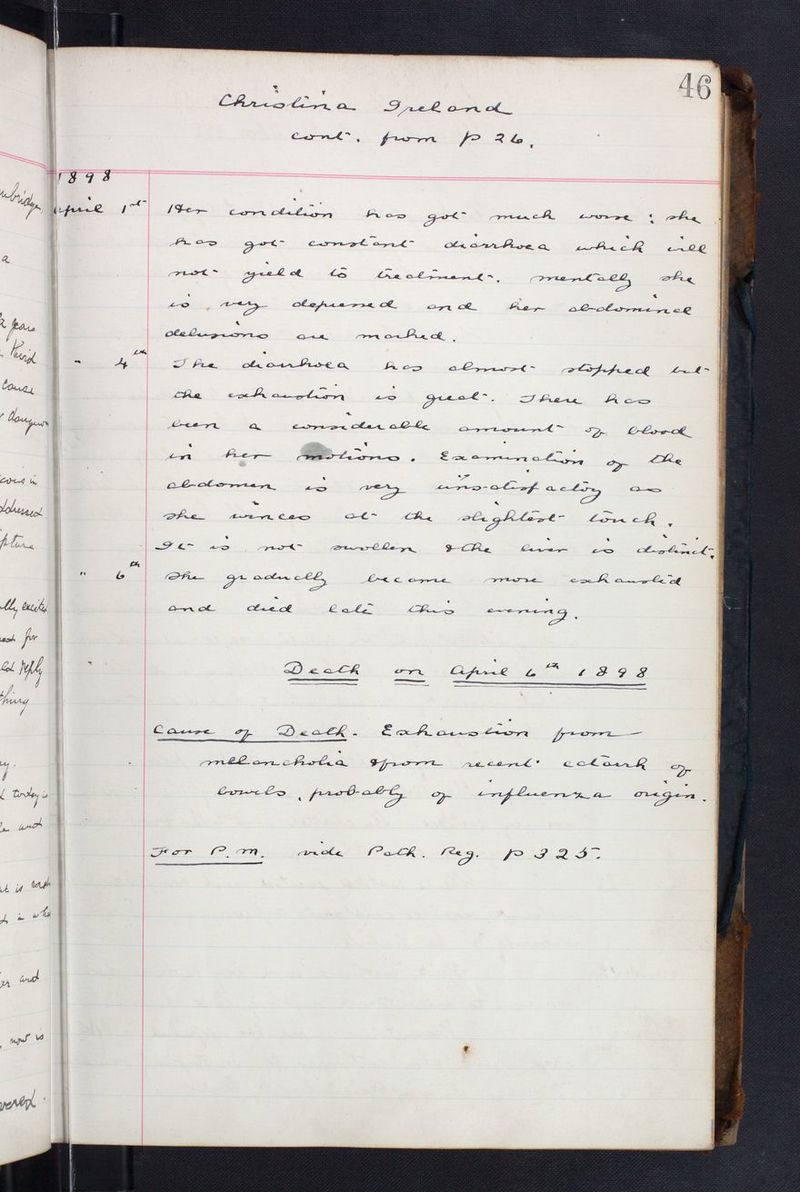 46
Christina Ireland
cont. from p 26.
1898
April 1st Her condition has got much worse: she
has got constant diarrhoea which will
not yield to treatment. mentally she
is very depressed and her abdominal
delusions are marked.
" 4th The diarrhoea has almost stopped but
the exhaustion is great. There has
been a considerable amount of blood
in her motions. Examination of the
abdomen is very unsatisfactory as
she winces at the slightest touch.
It is not swollen & the liver is distinct.
" 6th She gradually became more exhausted
and died late this evening.
Death on April 6th 1898
Cause of Death. Exhaustion from
melancholia & from recent catarrh of
bowels, probably of influenza origin.
For P.M. vide Path. Reg. p 325.